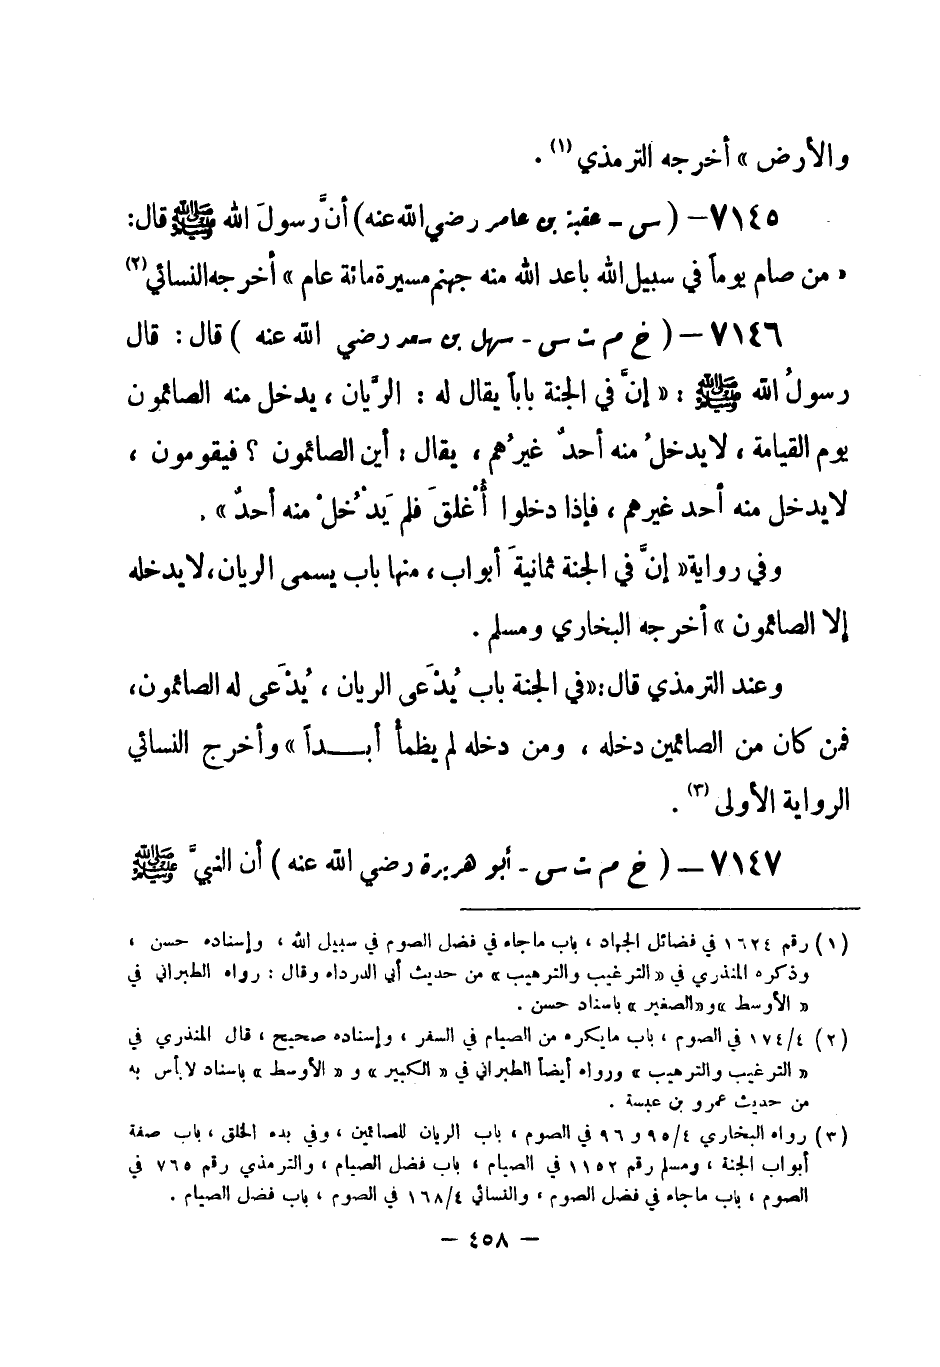 والأرض » أخرجه الترمذي (١) .
٧١٤٥ – ( س - عقبة بن عامر رضي الله عنه) أنَّ رسولَ الله ﷺ قال:
« من صام يوماً في سبيل الله باعد الله منه جهنم مسيرة مائة عام » أخرجه النسائي (٢)
٧١٤٦ – ( خ م ت س - سهل بن سعد رضي الله عنه ) قال : قال
رسولُ الله ﷺ : « إنَّ في الجنة باباً يقال له : الرَّيان ، يدخل منه الصائمون
يوم القيامة ، لا يدخلُ منه أحدٌ غيرُهم ، يقال : أين الصائمون ؟ فيقومون ،
لا يدخل منه أحد غيرهم ، فإذا دخلوا أُغْلقَ فلم يَدْخُلْ منه أحدٌ » .
وفي رواية « إنَّ في الجنة ثمانيةَ أبواب ، منها باب يسمى الريان، لا يدخله
إلا الصائمون » أخرجه البخاري ومسلم .
وعند الترمذي قال: « في الجنة باب يُدْعى الريان ، يُدْعى له الصائمون،
فمن كان من الصائمين دخله ، ومن دخله لم يظمأْ أبـــداً » وأخرج النسائي
الرواية الأولى (٣) .
٧١٤٧ – ( خ م ت س - أبو هريرة رضي الله عنه ) أن النبيَّ ﷺ
(١) رقم ١٦٢٤ في فضائل الجهاد ، باب ما جاء في فضل الصوم في سبيل الله ، وإسناده حسن ،
وذكره المنذري في « الترغيب والترهيب » من حديث أبي الدرداء وقال : رواه الطبراني في
« الأوسط » و « الصغير » باسناد حسن .
(٢) ١٧٤/٤ في الصوم ، باب ما يكره من الصيام في السفر ، وإسناده صحيح ، قال المنذري في
« الترغيب والترهيب » ورواه أيضاً الطبراني في « الكبير » و « الأوسط » باسناد لا بأس به
من حديث عمرو بن عبسة .
(٣) رواه البخاري ٩٥/٤ و ٩٦ في الصوم ، باب الريان للصائمين ، وفي بدء الخلق ، باب صفة
أبواب الجنة ، ومسلم رقم ١١٥٢ في الصيام ، باب فضل الصيام ، والترمذي رقم ٧٦٥ في
الصوم ، باب ما جاء في فضل الصوم ، والنسائي ١٦٨/٤ في الصوم ، باب فضل الصيام .
– ٤٥٨ –